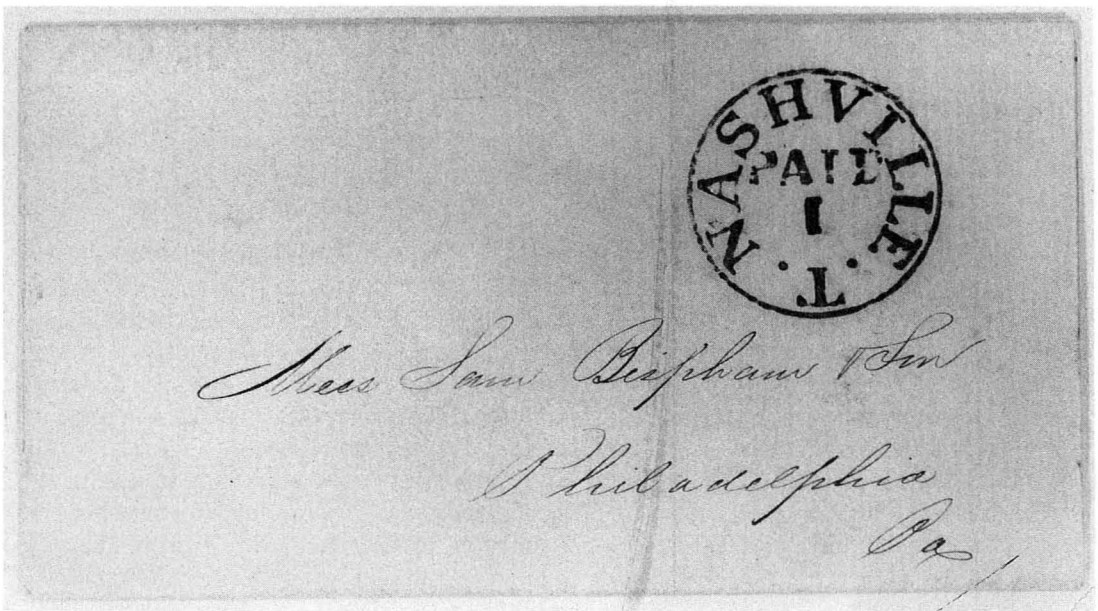 NASHVILLE. T.
PAID
1
Mess Sam Bispham & Son
Philadelphia
Pa